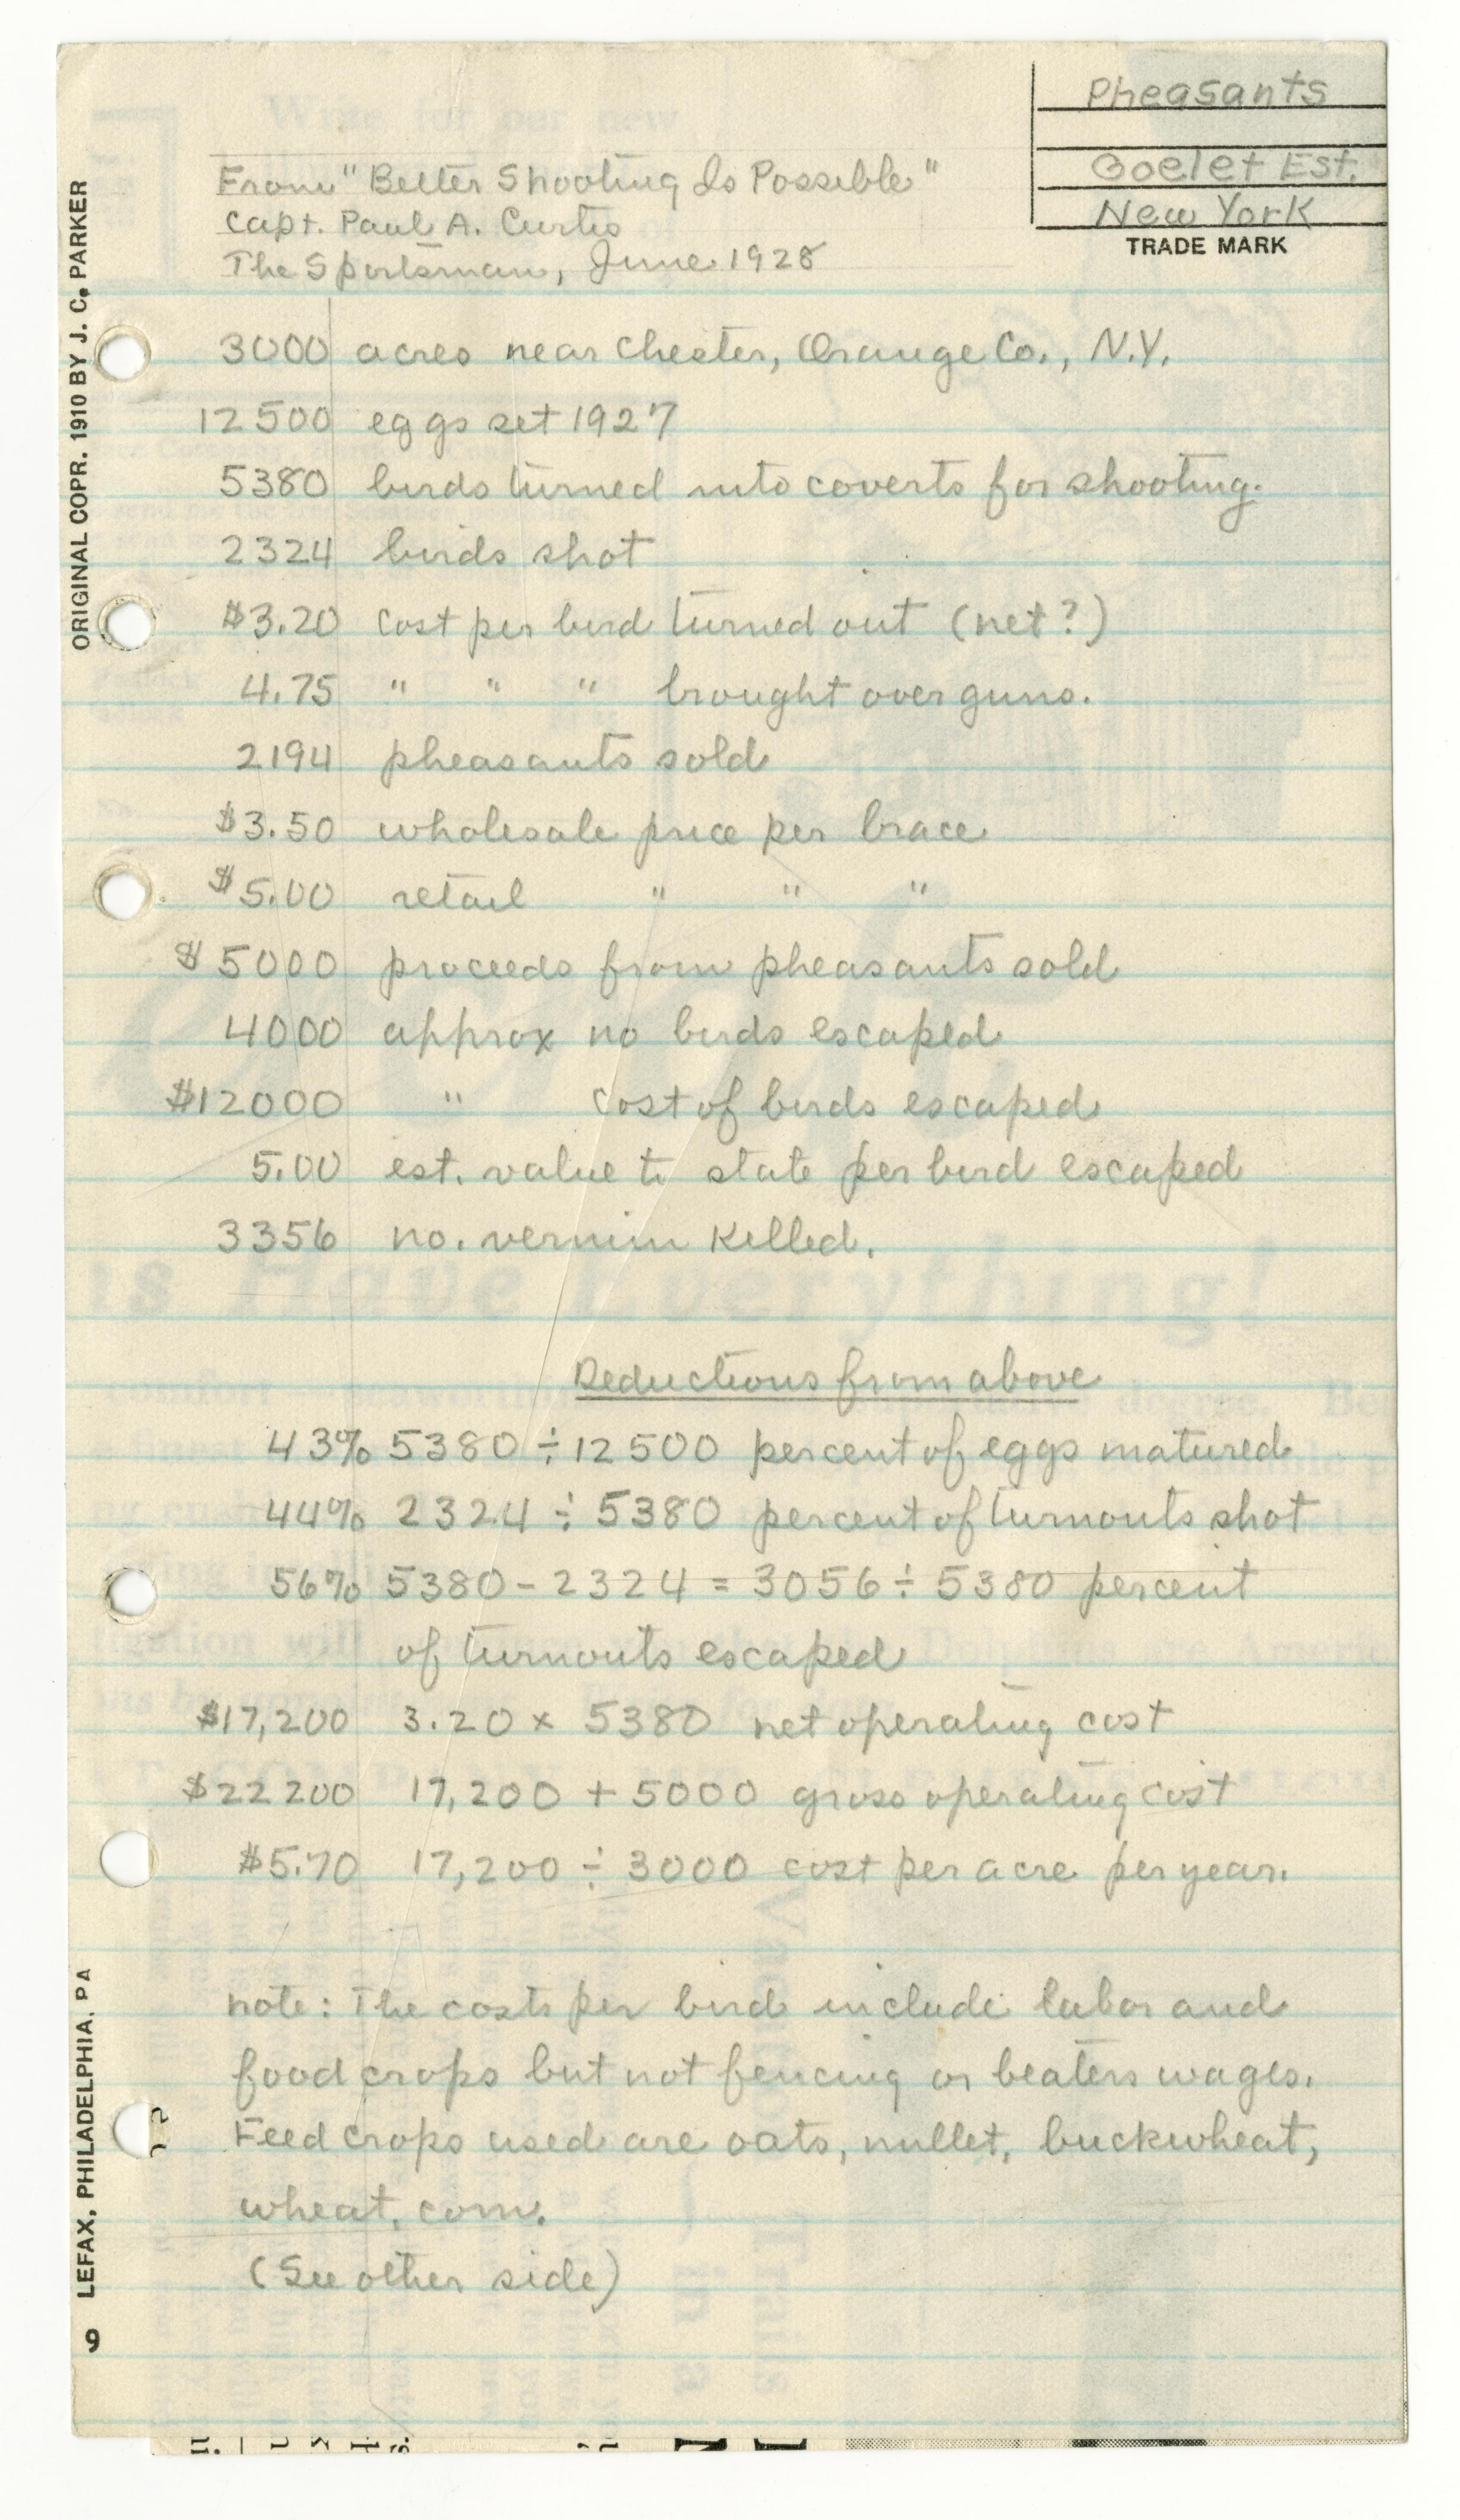 Pheasants
Goelet Est.
New York
TRADE MARK
From "Better Shooting Is Possible"
Capt. Paul A. Curtis
The Sportsman, June 1928
ORIGINAL COPR. 1910 BY J. C. PARKER
3000 acres near Chester, Orange Co., N.Y.
12500 eggs set 1927
5380 birds turned into coverts for shooting.
2324 birds shot
$3.20 cost per bird turned out (net?)
4.75 " " " brought over guns.
2194 pheasants sold
$3.50 wholesale price per brace
$5.00 retail " " "
$5000 proceeds from pheasants sold
4000 approx no birds escaped
$12000 " cost of birds escaped
5.00 est. value to state per bird escaped
3356 no. vermin killed.
is Have Everything!
Deductions from above
43% 5380 ÷ 12500 percent of eggs matured
44% 2324 ÷ 5380 percent of turnouts shot
56% 5380 - 2324 = 3056 ÷ 5380 percent
of turnouts escaped
$17,200 3.20 x 5380 net operating cost
$22200 17,200 + 5000 gross operating cost
$5.70 17,200 ÷ 3000 cost per acre per year.
note: The costs per bird include labor and
food crops but not fencing or beaters wages.
Feed crops used are oats, millet, buckwheat,
wheat, corn.
(See other side)
LEFAX, PHILADELPHIA, PA
9